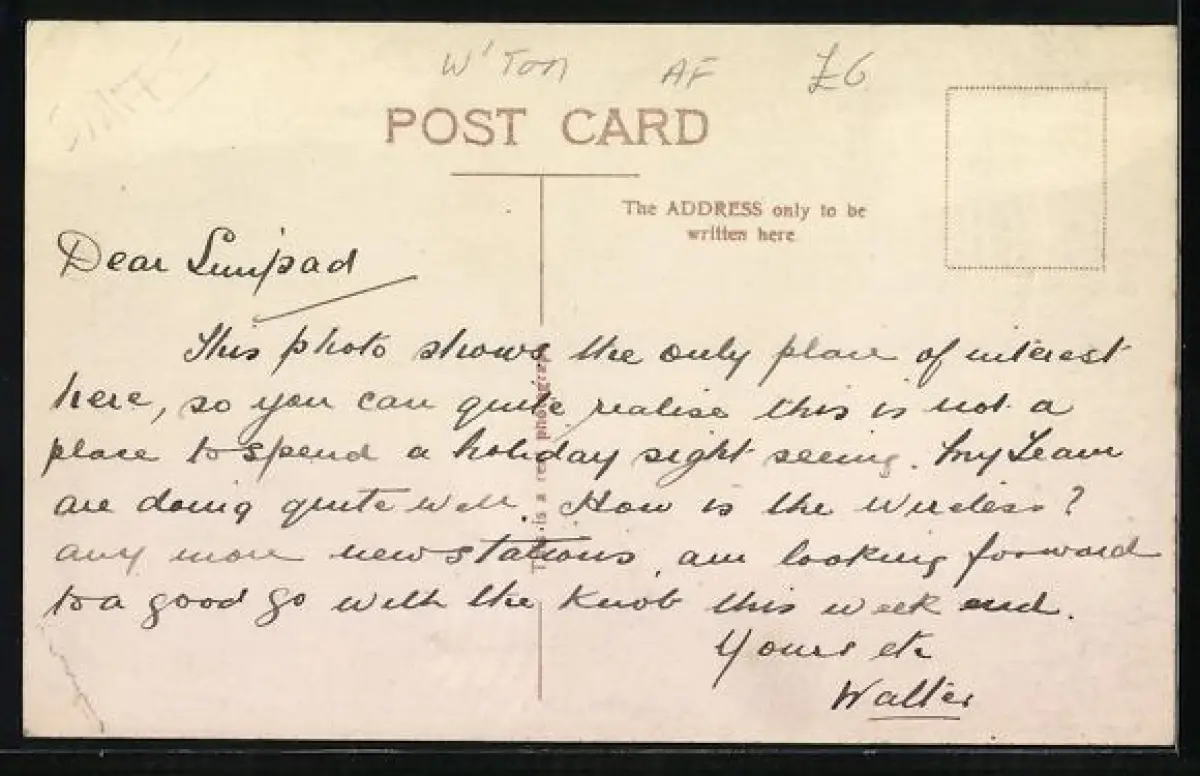 W'Ton AF £6
POST CARD
The ADDRESS only to be
written here.
Dear
This photo shows the only place of interest
here, so you can quite realise this is not a
place to spend a holiday sight seeing. My Team
are doing quite well. How is the wireless?
any more new stations, am looking forward
to a good go with the knob this week end.
Yours etc
Walter
This is a real photograph